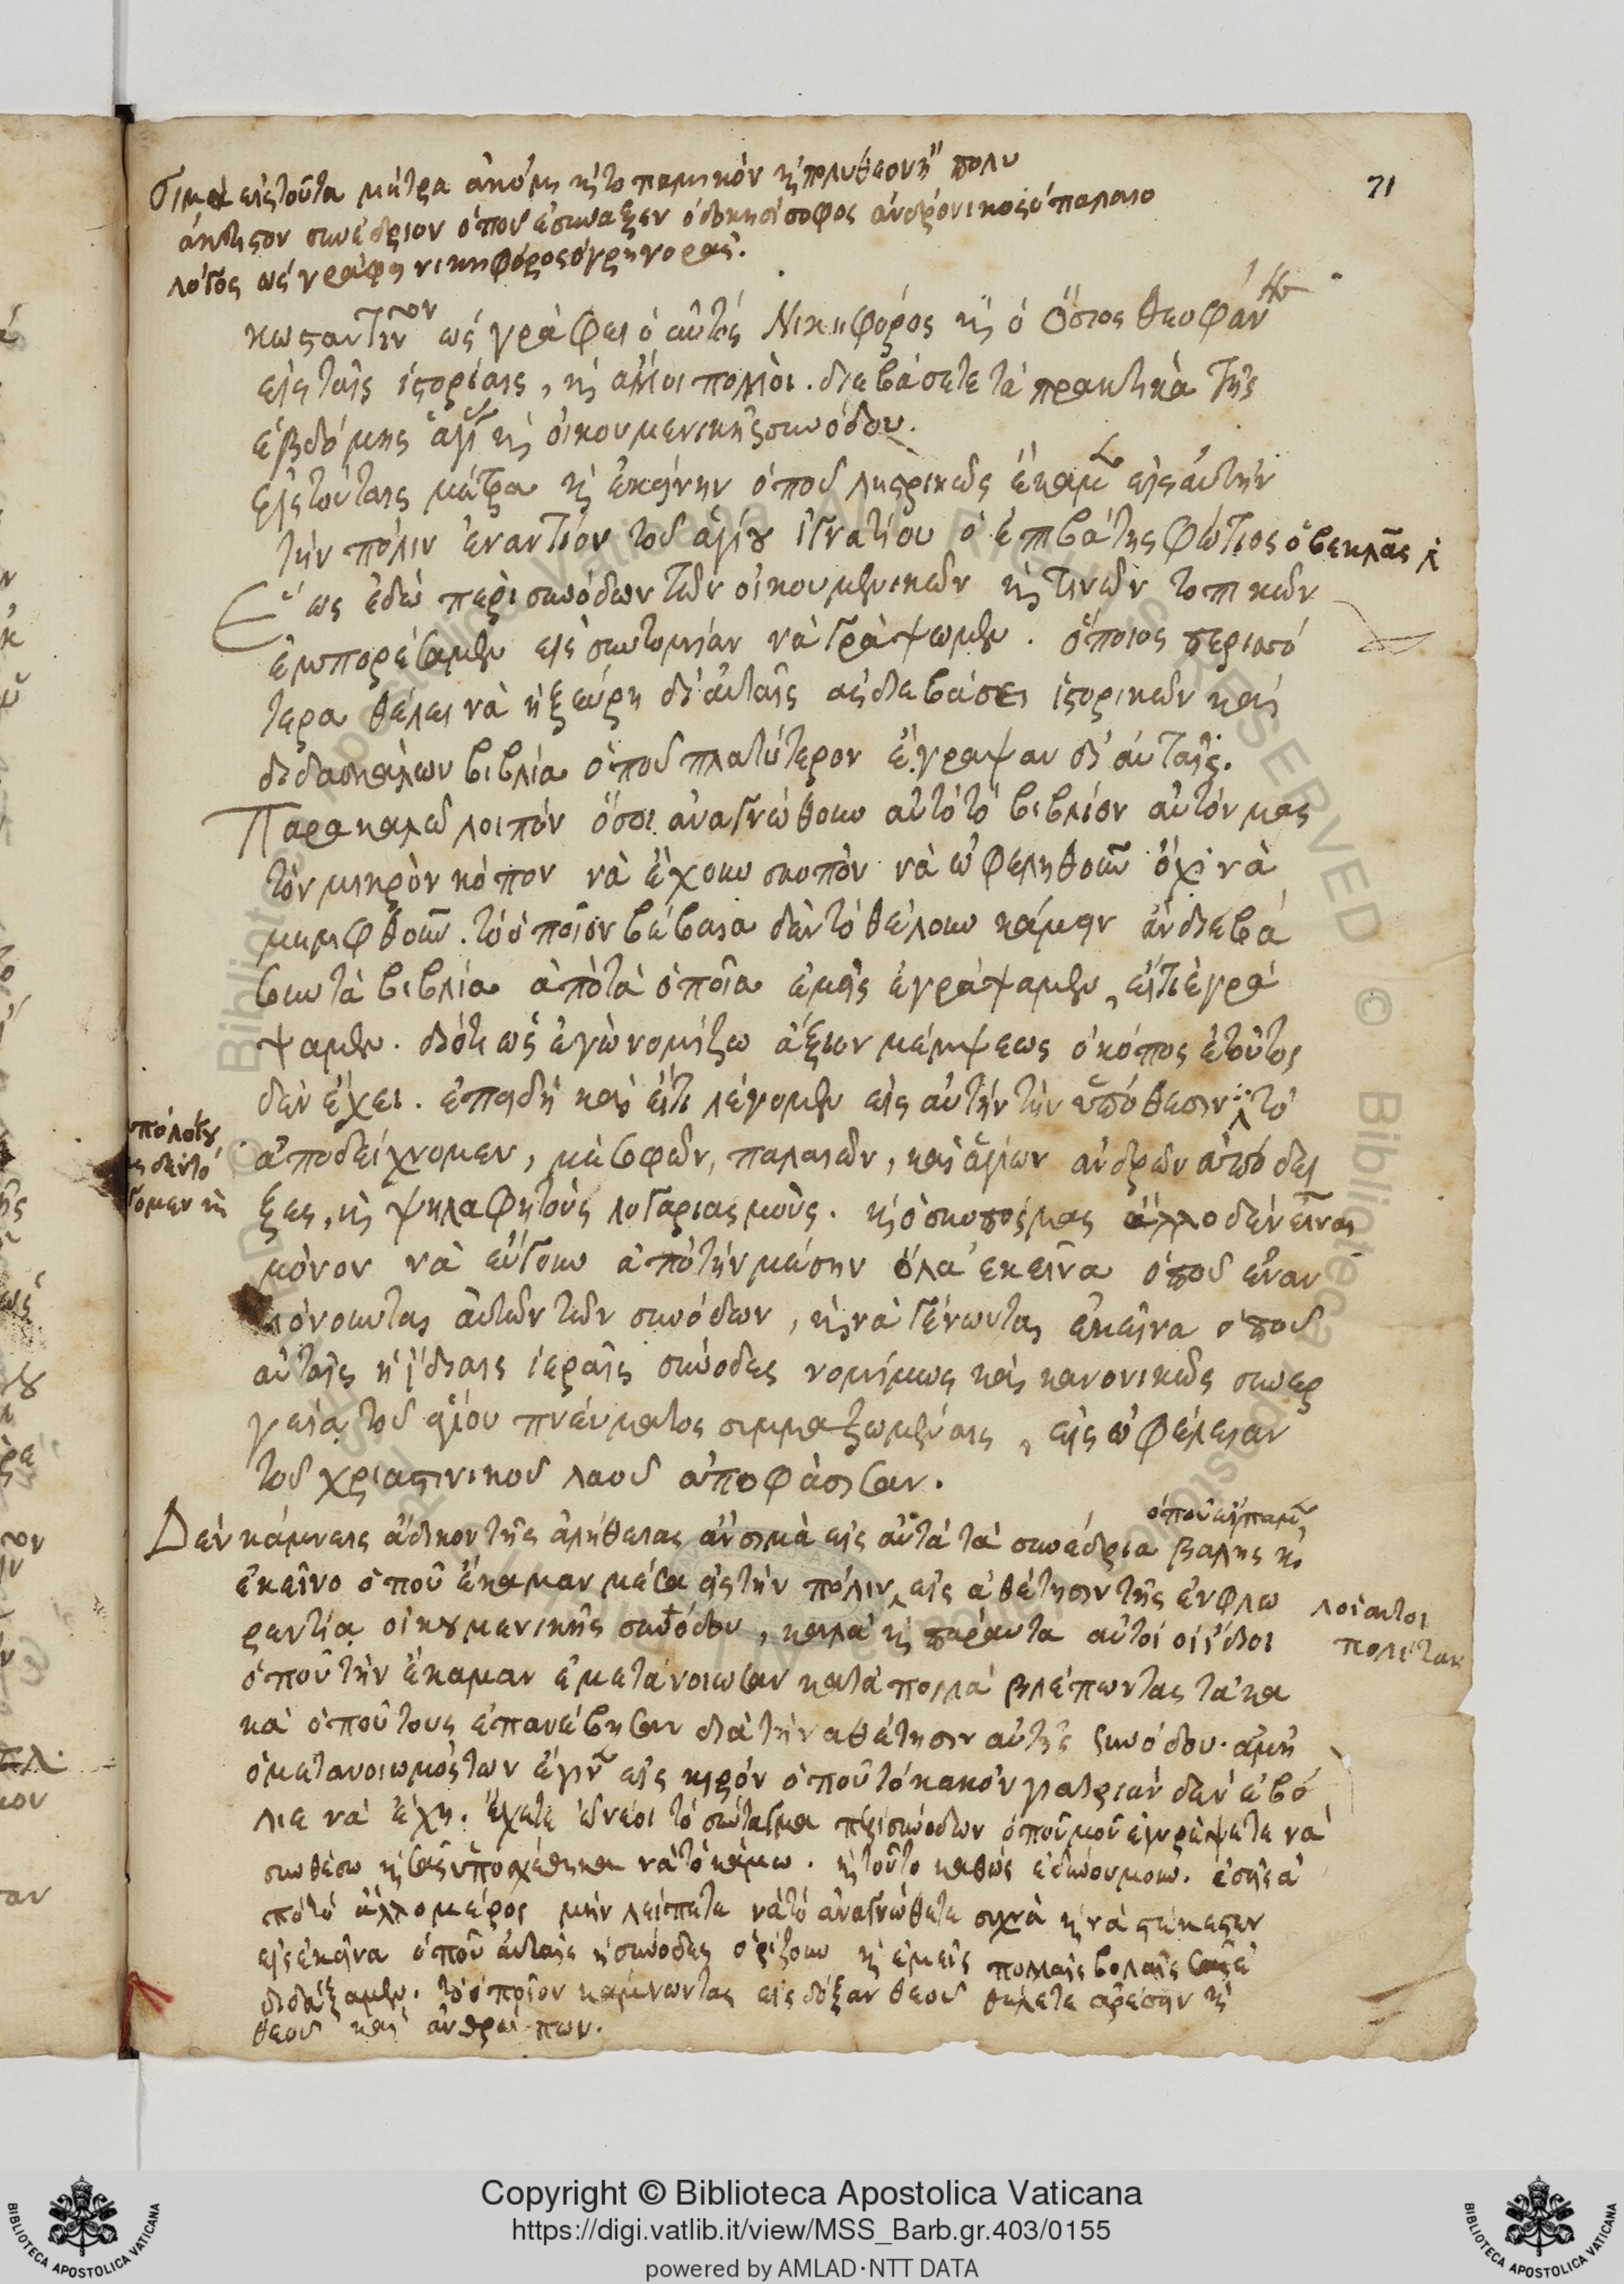 71
σιμὰ εἰς τοῦτα μέτρα ἀκόμη κ̀ τὸ
ἄπιστον συνέδριον ὁποῦ ἐσύναξεν ὁ ἀνδρόνικος ὁ παλαιο
λόγος ὡς γράφη νικηφόρος ὁ γρηγορᾶς.
ὡς γράφει ὁ αὐτὸς Νικηφόρος κ̀ ὁ ὅσιος θεοφάν
εἰς ταῖς ἱστορίαις, κ̀ ἄλλοι πολλοὶ. διαβάσετε τὰ πρακτικὰ τῆς
ἑβδόμης ἁγί κ̀ οἰκουμενικῆς συνόδου.
εἰς τούταις μέτρα κ̀ ἐκείνην ὁποῦ ληστρικῶς ἔκαμ εἰς αὐτὴν
τὴν πόλιν ἐναντίον τοῦ ἁγίου ἰγνατίου ὁ ἐπιβάτης φώτιος
Ἕως ἐδῶ περὶ συνόδων τῶν οἰκουμενικῶν κ̀ τινῶν τοπικῶν
ἐμπορέσαμεν εἰς συντομίαν νὰ γράψωμεν. ὅποιος περισσό
τερα θέλει νὰ ἠξεύρη δι' αὐταῖς ἂς διαβάσει ἱστορικῶν καὶ
διδασκάλων βιβλία ὁποῦ πλατύτερον ἔγραψαν δι' αὐταῖς.
Παρακαλῶ λοιπὸν ὅσοι ἀναγνώθουν αὐτὸ τὸ βιβλίον αὐτόν μας
τὸν μικρὸν κόπον νὰ ἔχουν σκοπὸν νὰ ὠφεληθοῦν ὄχι νὰ
μεμφθοῦν. τὸ ὁποῖον βέβαια δὲν τὸ θέλουν κάμην ἂν διαβά
σουν τὰ βιβλία ἀπὸ τὰ ὁποῖα ἐμεῖς ἐγράψαμεν, εἴτι ἐγρά
ψαμεν. διότι ὡς ἐγὼ νομίζω ἄξιον μέμψεως ὁ κόπος ἐτοῦτος
δὲν ἔχει. ἐπειδὴ καὶ εἴτι λέγομεν εἰς αὐτὴν τὴν ὑπόθεσιν τὸ
ἀποδείχνομεν, μὲ σοφῶν, παλαιῶν, καὶ ἁγίων ἀνδρῶν ἀπόδει
ξες, κ̀ ψηλαφητοὺς λογαριασμοὺς. κ̀ ὁ σκοπός μας ἄλλο δὲν εἶναι
μόνον νὰ εὔγουν ἀπὸ τὴν μέσην ὅλα ἐκεῖνα ὁποῦ εἶναι
αὐτῶν τῶν συνόδων, κ̀ νὰ γένωνται ἐκεῖνα ὁποῦ
αὐταῖς ἡ ἴδιαις ἱεραῖς σύνοδες νομίμως καὶ κανονικῶς συνερ
γεία τοῦ ἁγίου πνεύματος συμμαζωμέναις, εἰς ὠφέλειαν
τοῦ χριστιανικοῦ λαοῦ ἀποφάσισαν.
ὁποῦ εἴπαμεν
Δὲν κάμνεις ἄδικον τῆς ἀλήθειας ἂν σιμὰ εἰς αὐτὰ τὰ συνέδρια βάλης κ̀
ἐκεῖνο ὁποῦ ἔκαμαν μέσα εἰς τὴν πόλιν εἰς ἀθέτησιν τῆς ἐν φλω
ρεντία οἰκουμενικῆς συνόδου, καλὰ κ̀ παρἄυτα αὐτοὶ οἱ ἴδιοι
ὁποῦ τὴν ἔκαμαν ἐμετάνοιωσαν κατὰ πολλὰ βλέπωντας τὰ κα
κὰ ὁποῦ τους ἐπανέβησαν διὰ τὴν ἀθέτησιν αὐτῆς συνόδου. ἀμὴ
ὁ μετανοιωμός των ἐγιν εἰς κερὸν ὁποῦ τὸ κακὸν γιατρειὰν δὲν ἐβό
λιε νὰ ἔχη. ἔχετε ὦ νέοι τὸ σύνταγμα περὶ συνόδων ὁποῦ μοῦ ἐγράψετε νὰ
συνθέσω κ̀ σᾶς ὑποσχέθηκα νὰ τὸ κάμω. κ̀ τοῦτο καθὼς ἐδυνόυμουν. ἐσεῖς ἀ
πὸ τὸ ἄλλο μέρος μὴν λείπετε νὰ τὸ ἀναγνώθετε συχνὰ κ̀ νὰ στέκεσεν
εἰς ἐκεῖνα ὁποῦ αὐταῖς ἡ σύνοδες ὁρίζουν κ̀ ἐμεῖς πολλαῖς βολαῖς σᾶς ἐ
διδάξαμεν. τὸ ὁποῖον κάμνωντας εἰς δόξαν θεοῦ θέλετε ἀρέσην κ̀
θεοῦ καὶ ἀνθρώπων.
λοιαυτοι
πολίται
Copyright © Biblioteca Apostolica Vaticana
https://digi.vatlib.it/view/MSS_Barb.gr.403/0155
powered by AMLAD·NTT DATA
BIBLIOTECA APOSTOLICA VATICANA
BIBLIOTECA APOSTOLICA VATICANA